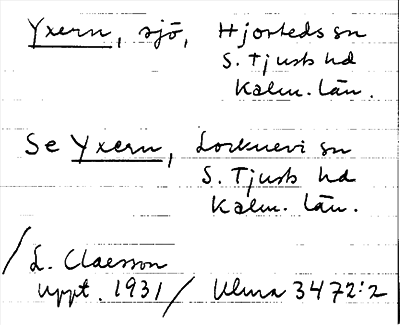 Yxern, sjö, Hjorteds sn
S. Tjust hd
Kalm. län.
Se Yxern, Locknevi sn
S. Tjust hd
Kalm. län.
/ L. Claesson
uppt. 1931 / Ulma 3472:2